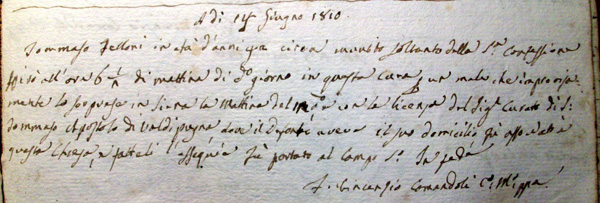 A dì 14 Giugno 1810.
Tommaso Felloni in età d'anni circa munito soltanto della S.a Confessione
spirò all'ore 6 1/2 di mattina di d.o giorno in questa Cura, un male che improvisa-
mente lo sorprese in Siena la Mattina del con la licenza del Sig.e Curato di S.
Tommaso Apostolo di Valdipugna dove il Defonto aveva il suo domicilio fù associato a
questa Chiesa, e fatteli l'essequie fù portato al Campo S.o In fede
F. Vincenzio Comandoli C.o M.o pp.a